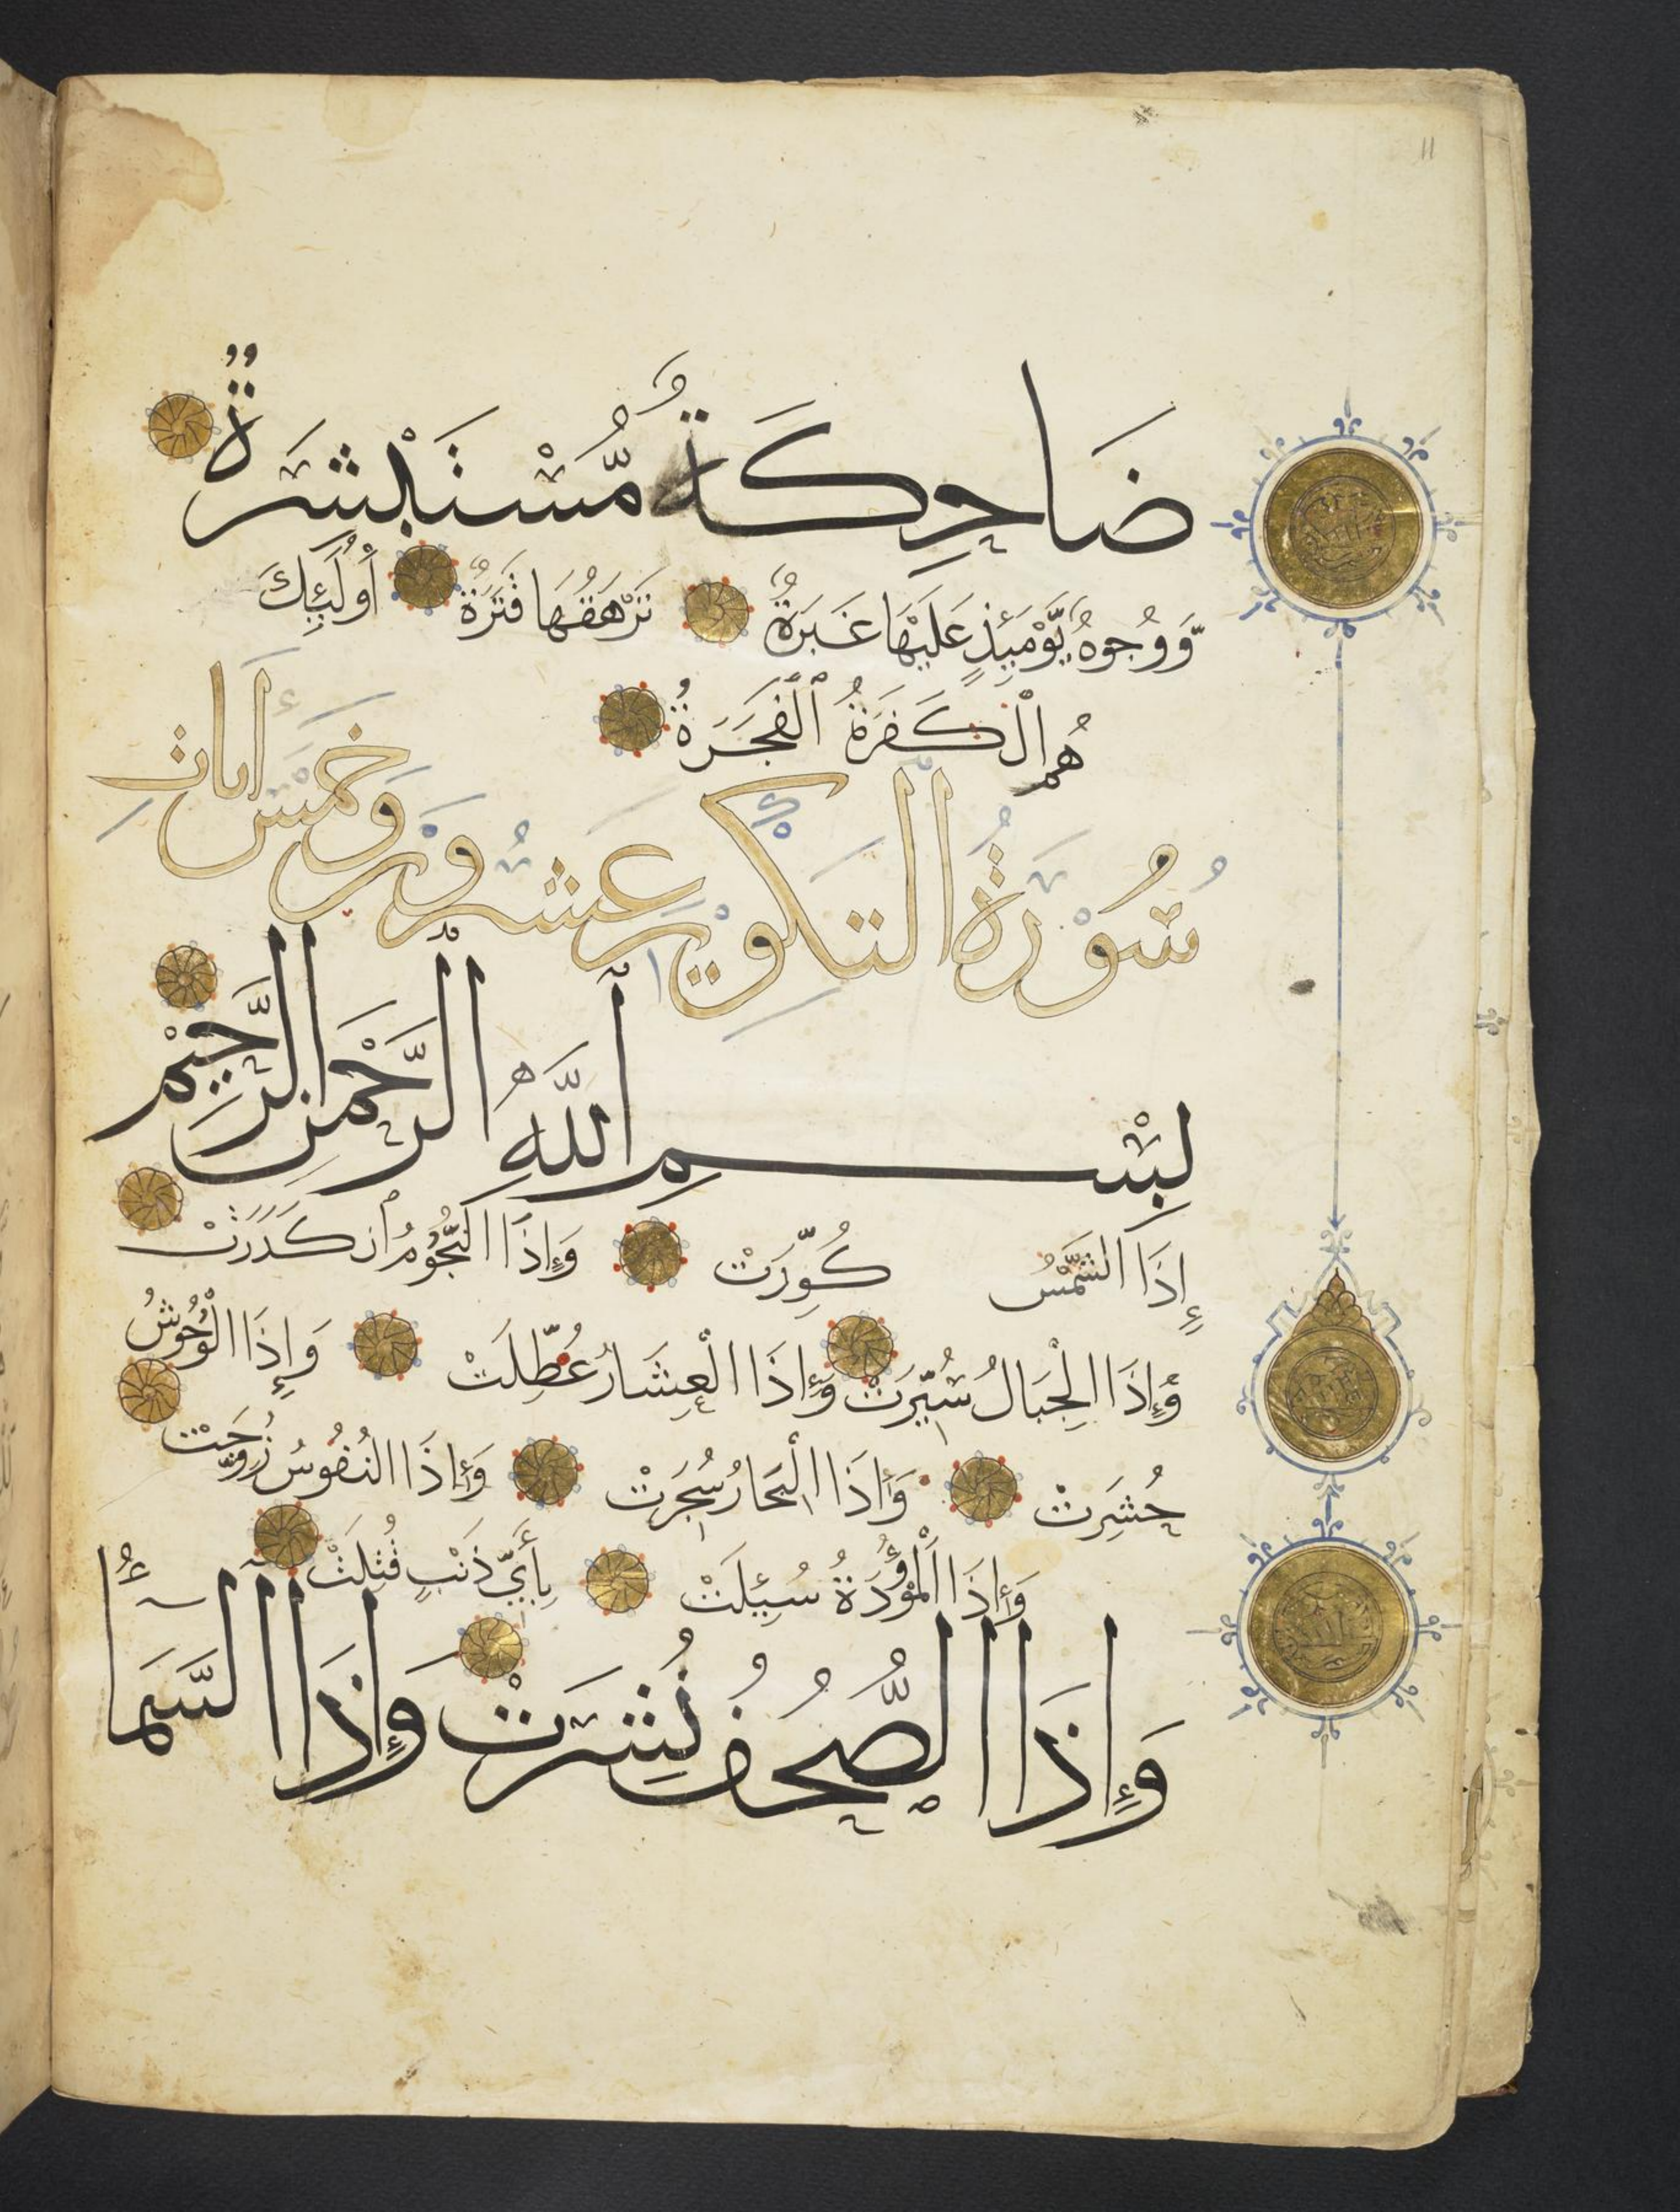 11
ضَاحِكَةٌ مُّسْتَبْشِرَةٌ
وَّوُجُوهٌ يَّوْمَئِذٍ عَلَيْهَا غَبَرَةٌ تَرْهَقُهَا قَتَرَةٌ أُولَٰئِكَ
هُمُ الْكَفَرَةُ الْفَجَرَةُ
سُوْرَةُ التَّكْوِيْرِ عِشْرُوْنَ وَخَمْسُ أٰيَاتٍ
بِسْمِ اللَّهِ الرَّحْمٰنِ الرَّحِيْمِ
إِذَا الشَّمْسُ كُوِّرَتْ وَإِذَا النُّجُوْمُ انْكَدَرَتْ
وَإِذَا الْجِبَالُ سُيِّرَتْ وَإِذَا الْعِشَارُ عُطِّلَتْ وَإِذَا الْوُحُوْشُ
حُشِرَتْ وَإِذَا الْبِحَارُ سُجِّرَتْ وَإِذَا النُّفُوْسُ زُوِّجَتْ
وَإِذَا الْمَوْؤُدَةُ سُئِلَتْ بِأَيِّ ذَنْبٍ قُتِلَتْ
وَإِذَا الصُّحُفُ نُشِرَتْ وَإِذَا السَّمَآءُ